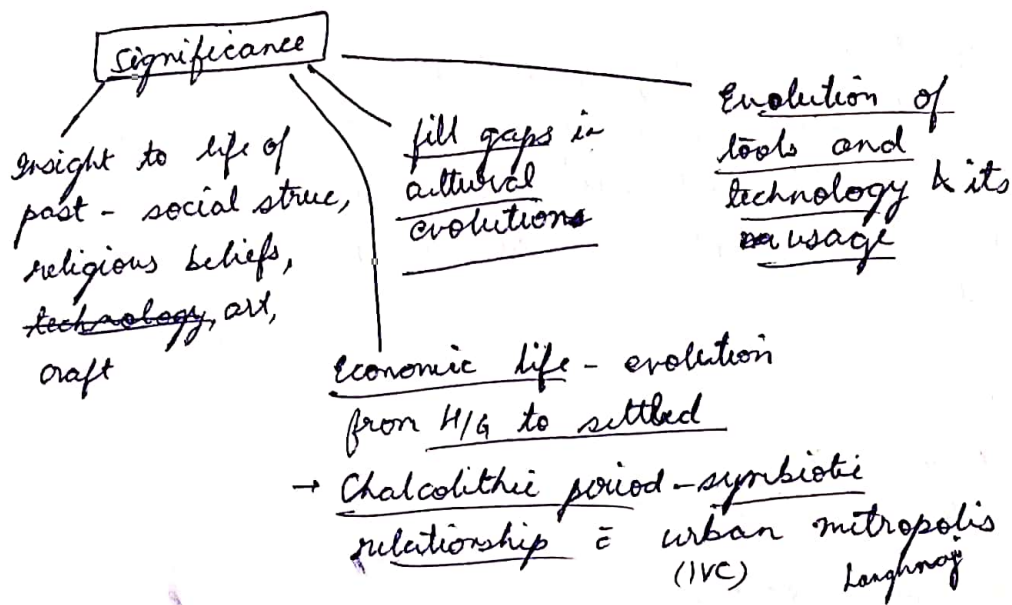 Significance
Insight to life of
past - social struc,
religious beliefs,
technology, art,
craft
fill gaps in
cultural
evolutions
Evolution of
tools and
technology & its
usage
Economic life - evolution
from H/G to settled
→ Chalcolithic period - symbiotic
relationship c̄ urban mitropolis
(IVC) Langhnaj